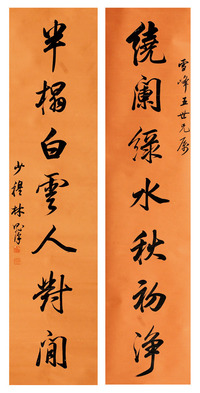 雪峰五世兄屬
繞闌綠水秋初淨
半榻白雲人對閒
少穆林則徐